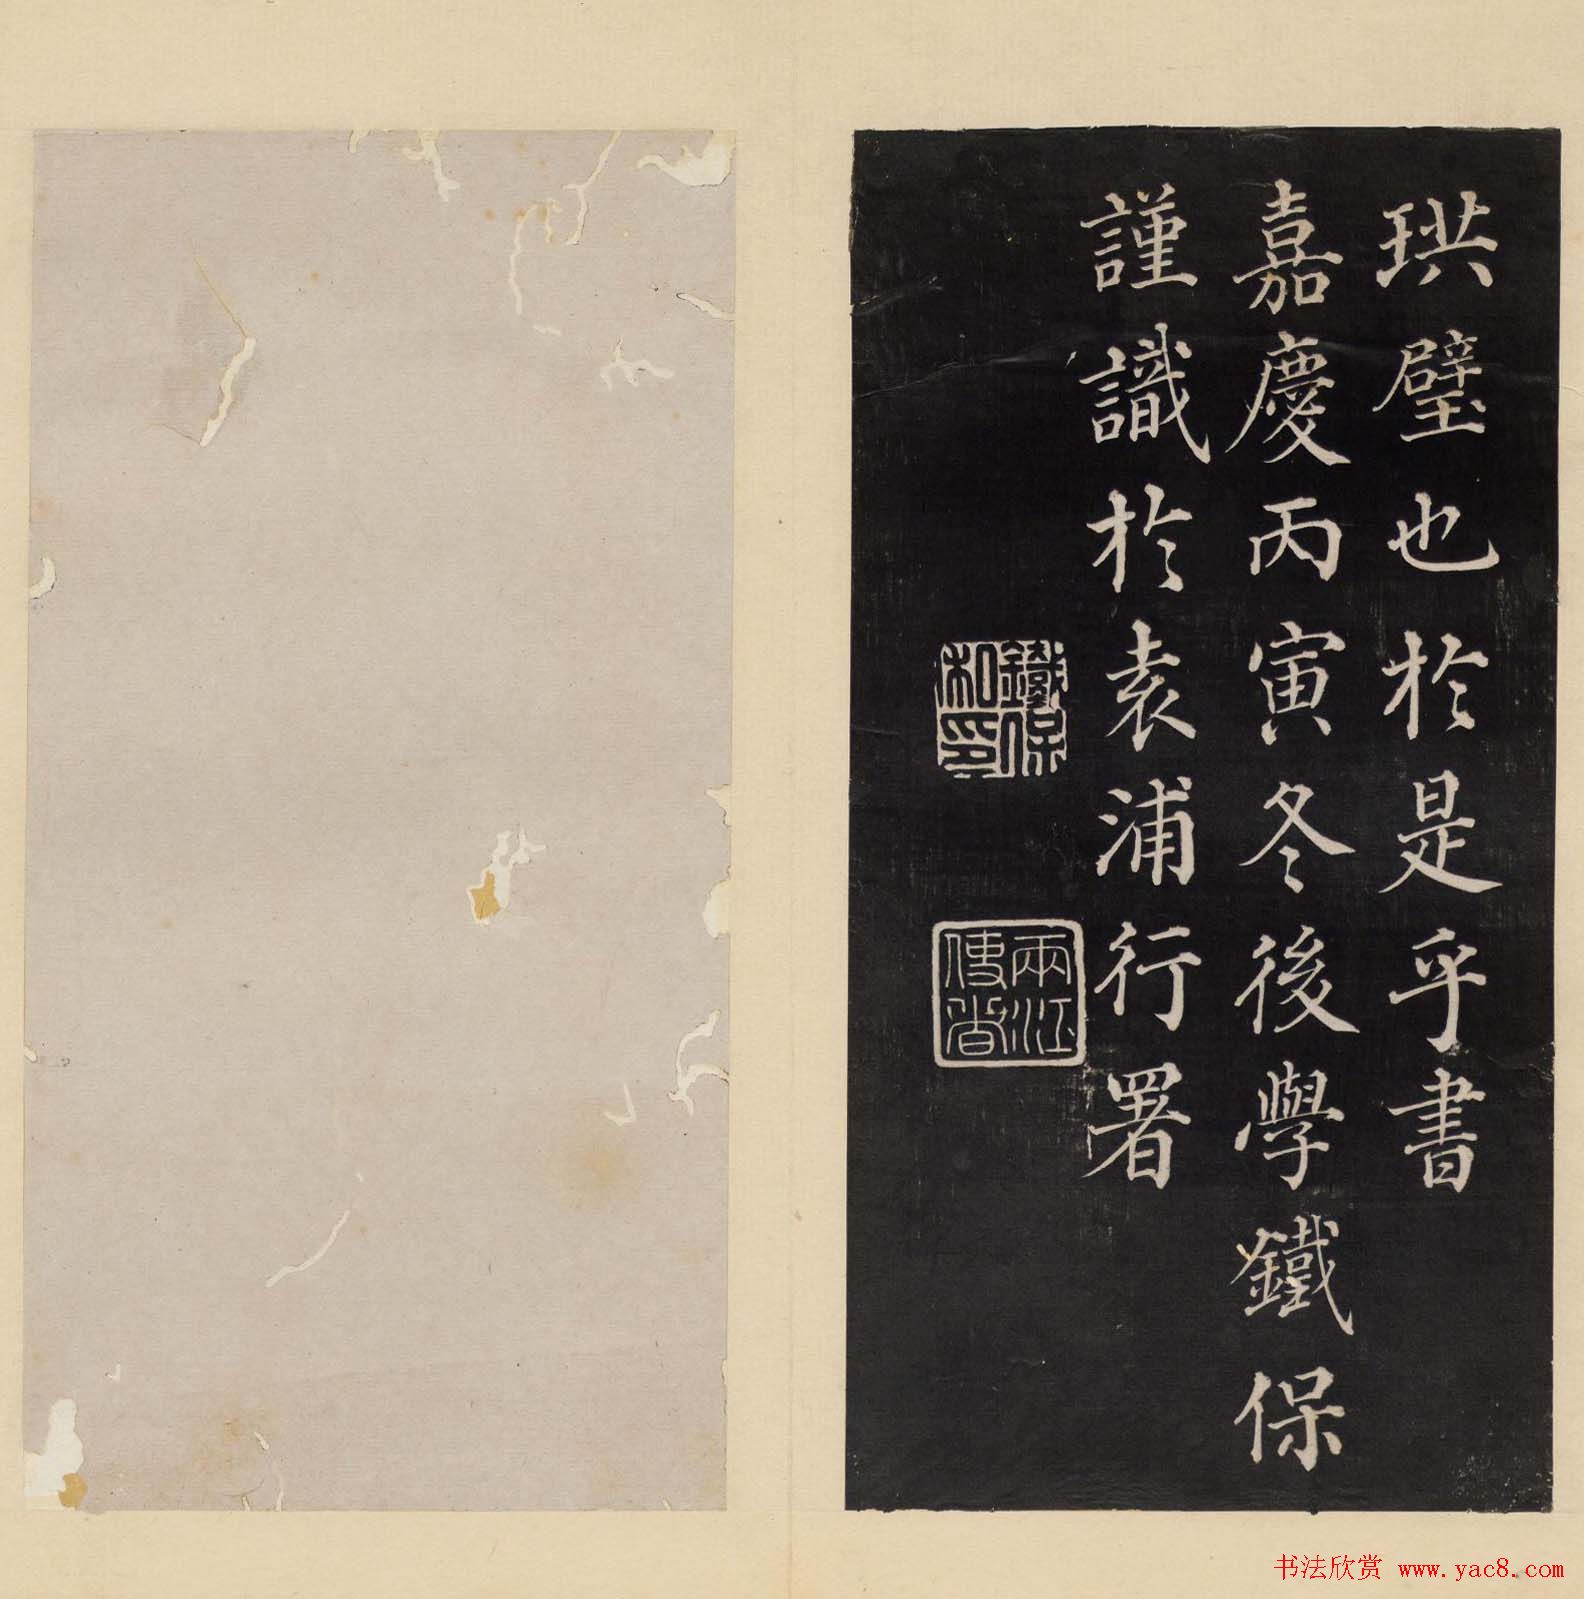 珙璧也於是乎書
嘉慶丙寅冬後學鐵保
謹識於袁浦行署
鐵保
私印
兩江
使者
书法欣赏 www.yac8.com